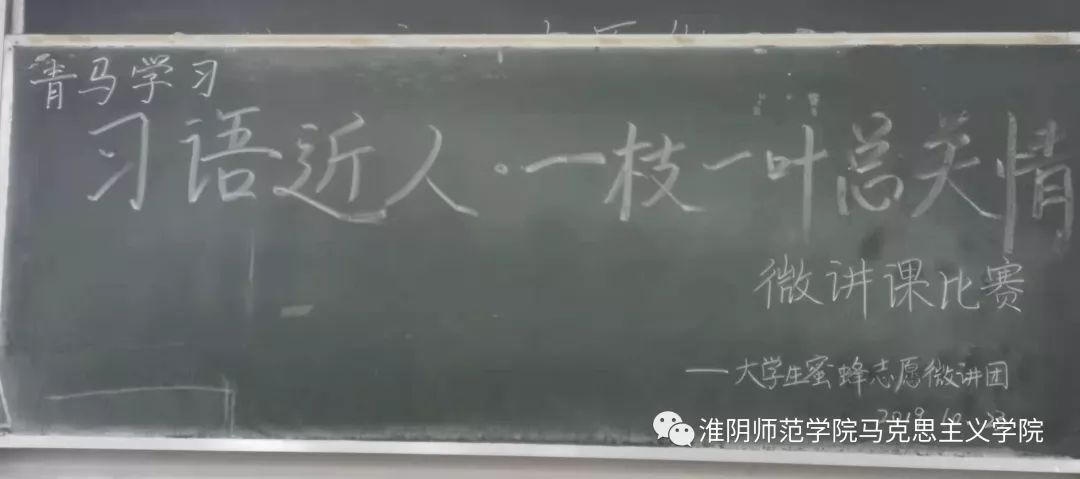 青马学习
习语近人·一枝一叶总关情
微讲课比赛
——大学生蜜蜂志愿微讲团
淮阴师范学院马克思主义学院